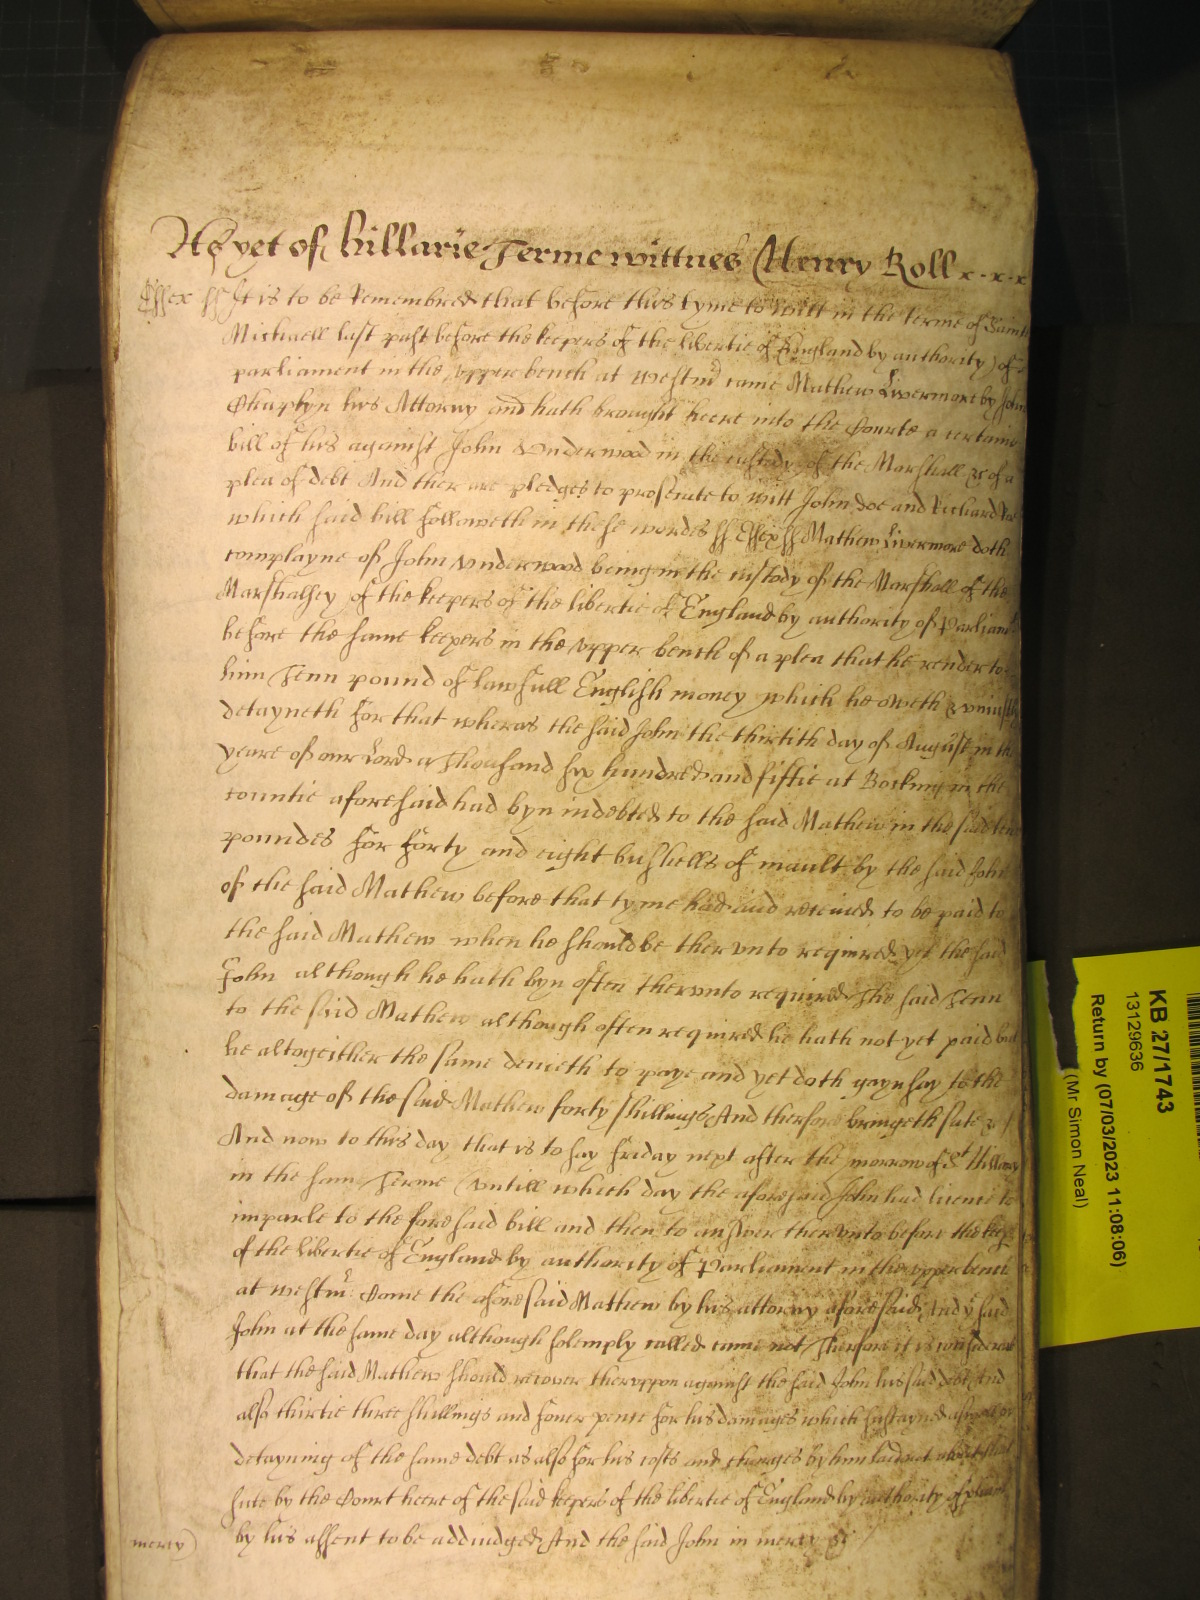 As yet of Hillarie Terme wittnes Henry Roll x-x-x
Essex ss It is to be Remembred that before this tyme to witt in the terme of Saint
Michaell last past before the keepers of the libertie of England by authority of
parliament in the vpper bench at westmr came Mathew Livermore by John
Chaplyn his Attorny and hath brought heere into the Courte a certaine
bill of his against John Vnderwood in the custody of the Marshall &c of a
plea of debt And ther are pledges to prosecute to witt John Doe and Richard Roe
which said bill followeth in these wordes ss Essex ss Mathew Livermore doth
complayne of John Vnderwood being in the custody of the Marshall of the
Marshalsey of the keepers of the libertie of England by authority of Parliamt
before the same keepers in the vpper bench of a plea that he render to
him Tenn pound of lawfull English money which he oweth & vniustly
detayneth for that wheras the said John the thirtith day of August in the
yeare of our Lord a Thousand six hundred and fiftie at Bocking in the
countie aforesaid had byn indebted to the said Mathew in the said ten
poundes for forty and eight bushells of mault by the said John
of the said Mathew before that tyme had and receiued to be paid to
the said Mathew when he should be thervnto required yet the said
John although he hath byn often thervnto required The said Tenn
to the said Mathew although often required he hath not yet paid but
he altogeither the same denieth to paye and yet doth gaynsay to the
damage of the said Mathew forty shillings And therfore bringeth sute &c
And now to this day that is to say Friday next after the morrow of St Hillary
in the sam Terme vntill which day the aforesaid John had licence to
imparle to the foresaid bill and then to answer thervnto before the keeps
of the libertie of England by authority of Parliament in the vpper bench
at westmr Come the aforesaid Mathew by his attorny aforesaid And ye said
John at the same day although solemply called came not Therfore it is considered
that the said Mathew should recover thervppon against the said John his said debt And
also thirtie three shillings and fower pence for his damages which sustayned
detayning of the same debt as also for his costs and charges by him laid out about that
sute by the Court heere of the said keepers of the libertie of England by authority of
mercy) by his assent to be addiudged And the said John in mercy &c
KB 27/1743
13129636
Return by (07/03/2023 11:08:06)
(Mr Simon Neal)